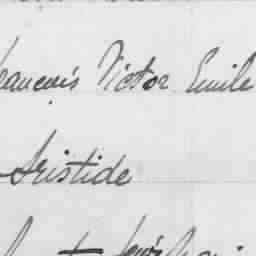 François Victor Emile
Aristide